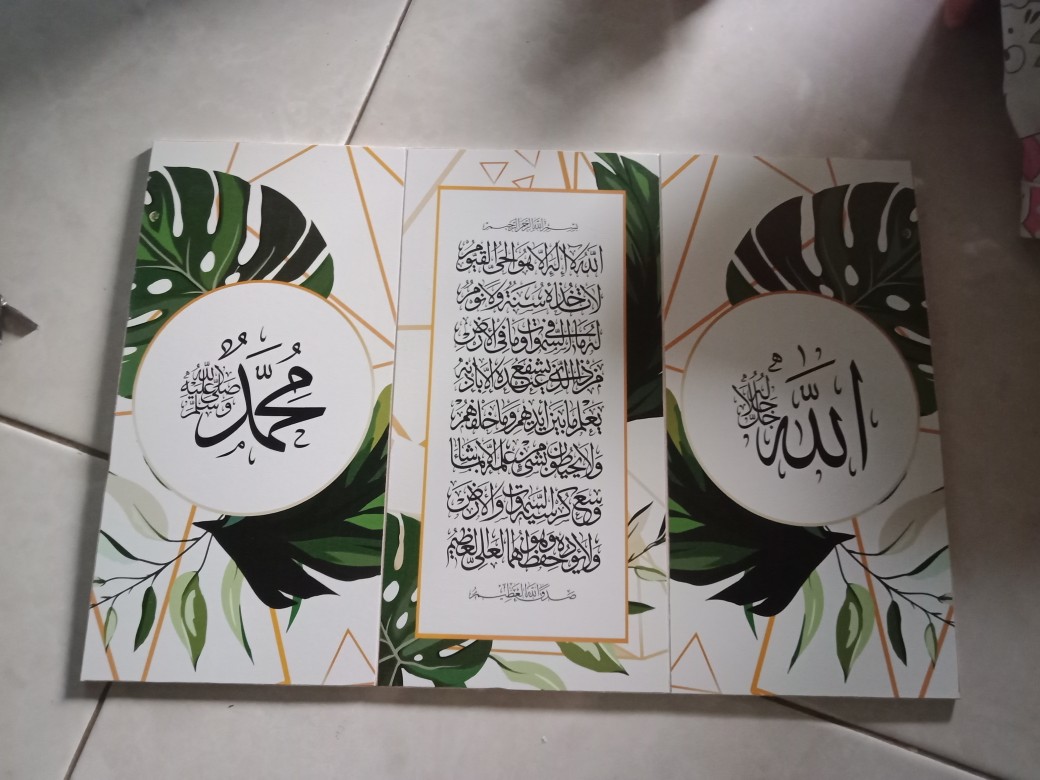 الله
جل جلاله
بسم الله الرحمن الرحيم
الله لا إله إلا هو الحي القيوم
لا تأخذه سنة ولا نوم
له ما في السموات وما في الأرض
من ذا الذي يشفع عنده إلا بإذنه
يعلم ما بين أيديهم وما خلفهم
ولا يحيطون بشيء من علمه إلا بما شاء
وسع كرسيه السموات والأرض
ولا يؤوده حفظهما وهو العلي العظيم
صدق الله العظيم
محمد
صلى الله عليه وسلم